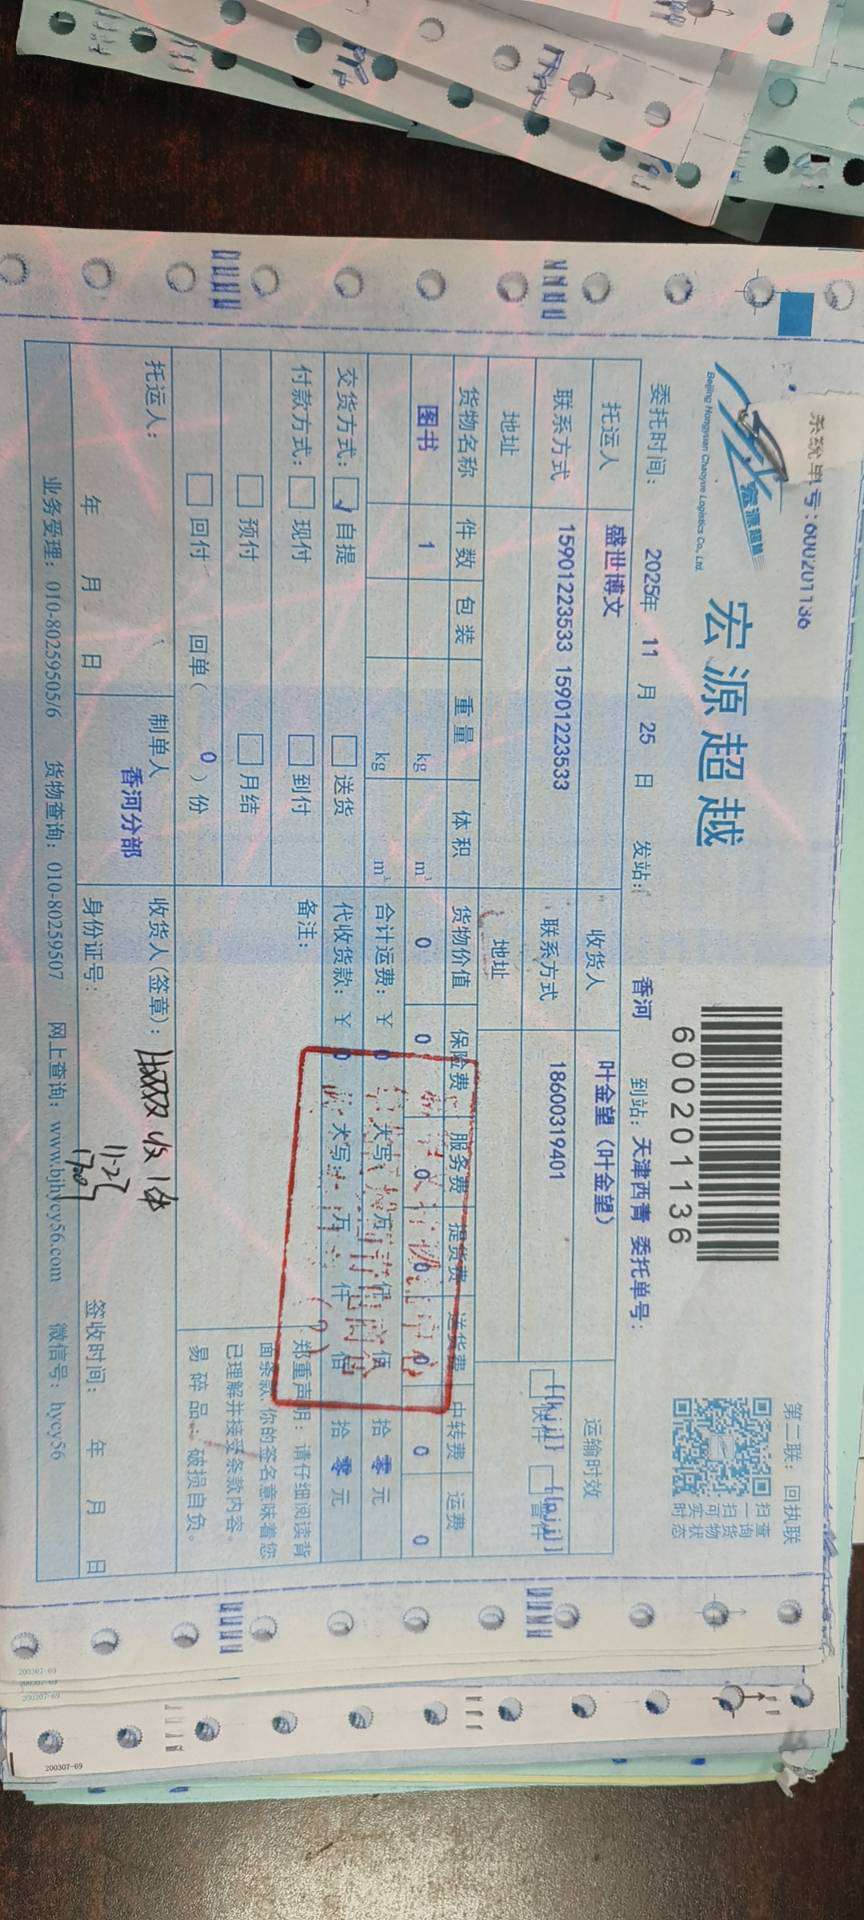 系统单号:600201136
第二联：回执联
宏源超越
Beijing Hongyuan Chaoyue Logistics Co., Ltd.
宏源超越
600201136
扫一扫可实时
查询货物状态
委托时间： 2025年 11 月 25 日 发站： 香河 到站：天津西青 委托单号：
托运人 盛世博文 收货人 叶金望（叶金望） 运输时效
联系方式 15901223533 15901223533 联系方式 18600319401
地址 地址
货物名称 件数 包装 重量 体积 货物价值 保险费 服务费 提货费 送货费 中转费 运费
图书 1 kg m³ 0 0 0 0 0 0 0
kg m³ 合计运费：￥ 0 大写： 万 仟 佰 拾 零 元
交货方式： 自提 送货 代收货款：￥ 0 大写： 万 仟 佰 拾 零 元
付款方式： 现付 到付 备注：
预付 月结
回付 回单（ 0 ）份
郑重声明：请仔细阅读背
面条款，你的签名意味着您
已理解并接受条款内容。
易碎品：破损自负。
托运人： 制单人 收货人(签章)： 收1件
香河分部
年 月 日 身份证号： 签收时间： 年 月 日
业务受理：010-80259505/6 货物查询：010-80259507 网上查询：www.bjhycy56.com 微信号：hycy56
200307-09
200307-09